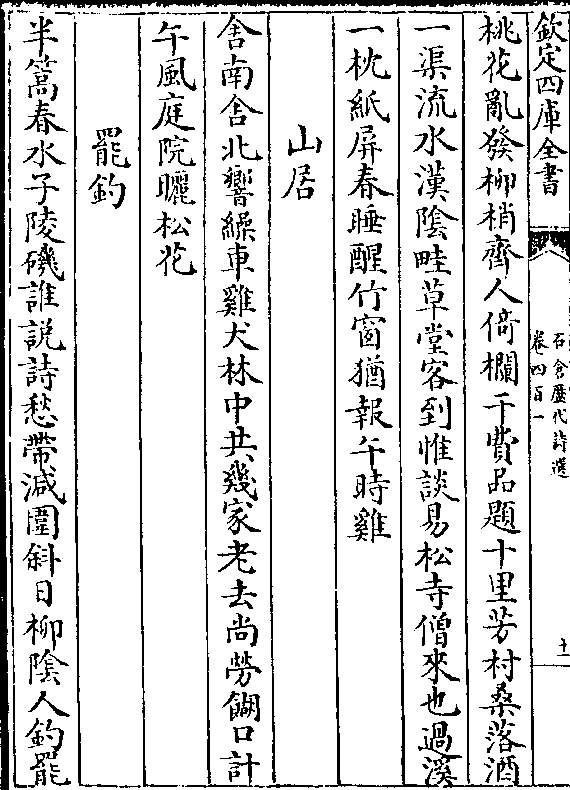 欽定四庫全書
石倉歷代詩選
卷四百一
十一
桃花亂發柳梢齊人倚欄干費品題十里芳村桑落酒
一渠流水漢陰畦草堂客到惟談易松寺僧來也過溪
一枕紙屏春睡醒竹窗猶報午時雞
山居
舍南舍北響繰車雞犬林中共幾家老去尚勞餬口計
午風庭院曬松花
罷釣
半篙春水子陵磯誰說詩愁帶減圍斜日柳陰人釣罷